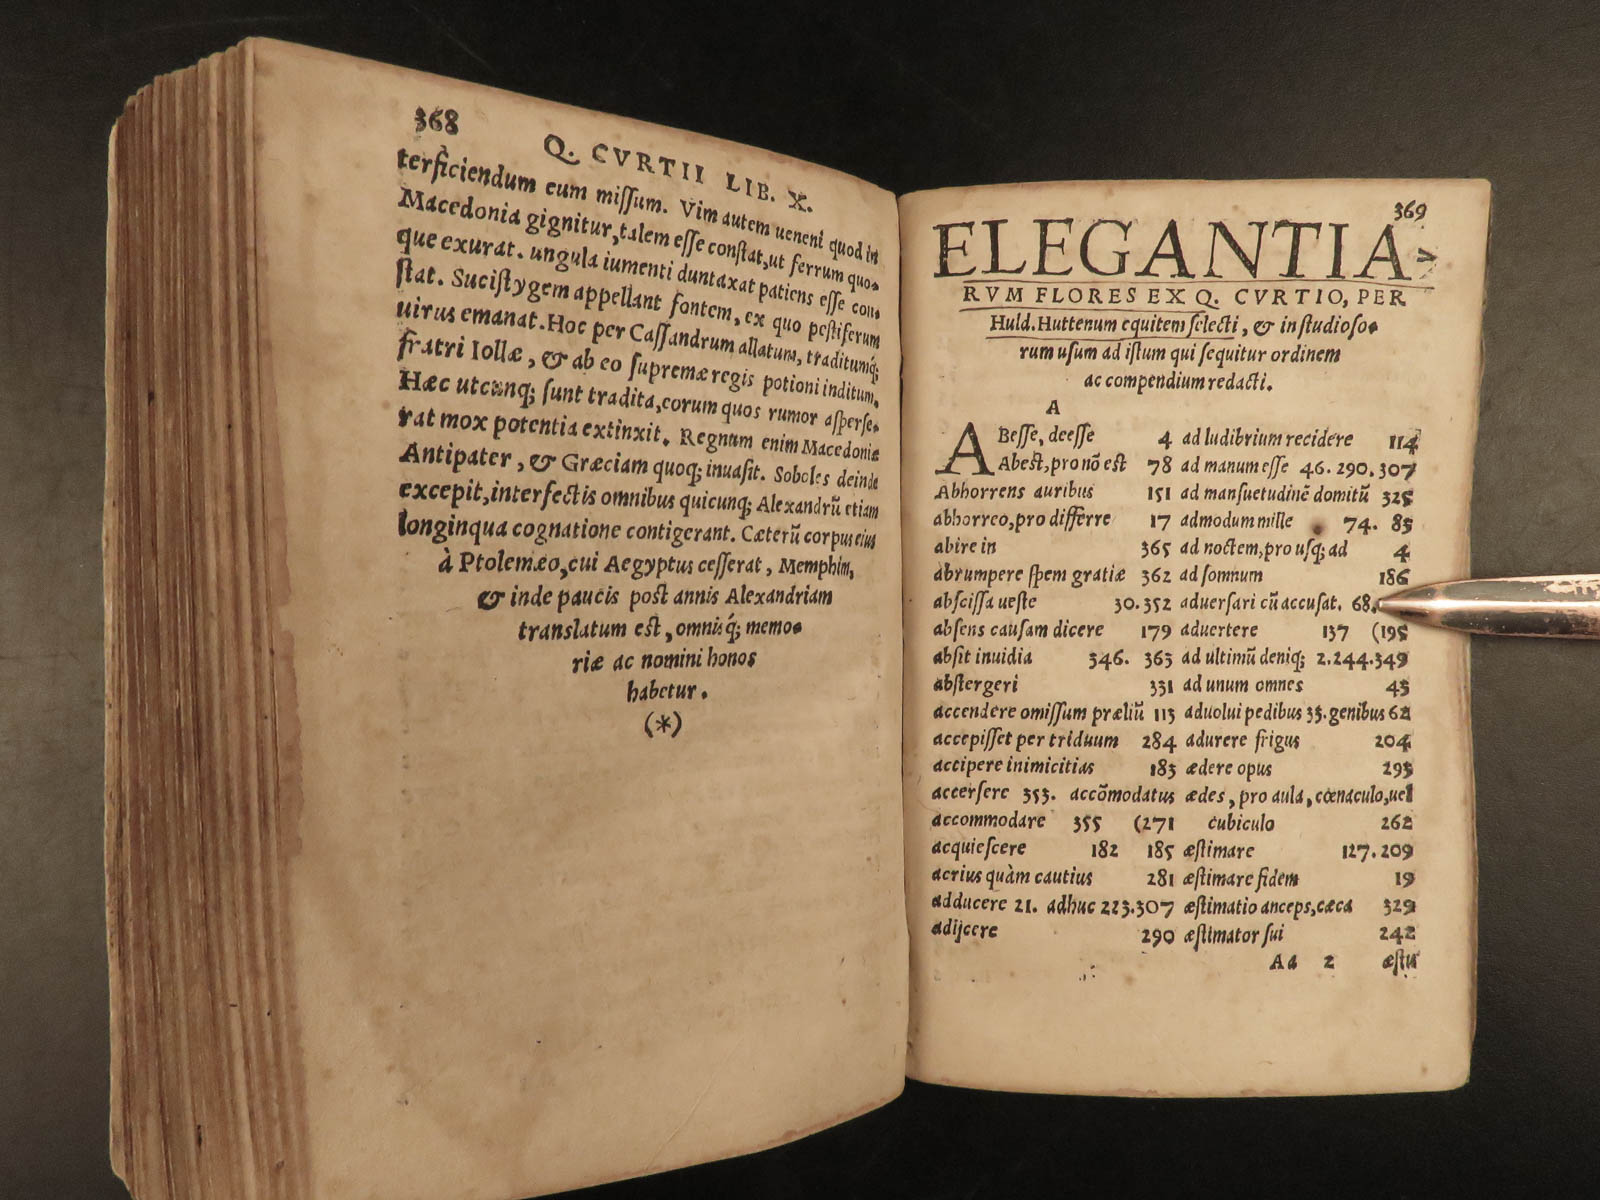 368
Q. CVRTII LIB. X.
terficiendum eum missum. Vim autem ueneni quod in
Macedonia gignitur, talem esse constat, ut ferrum quo-
que exurat. ungula iumenti duntaxat patiens esse con-
stat. Sucistygem appellant fontem, ex quo pestiferum
uirus emanat. Hoc per Cassandrum allatum, traditumq́;
fratri Iollæ, & ab eo supremæ regis potioni inditum.
Hæc utcunq; sunt tradita, eorum quos rumor asperse-
rat mox potentia extinxit. Regnum enim Macedoniæ
Antipater, & Græciam quoq; inuasit. Soboles deinde
excepit, interfectis omnibus quicunq; Alexandrũ etiam
longinqua cognatione contigerant. Cæterũ corpus eius
à Ptolemæo, cui Aegyptus cesserat, Memphim,
& inde paucis post annis Alexandriam
translatum est, omnisq́; memo-
riæ ac nomini honos
habetur.
(*)
369
ELEGANTIA-
RVM FLORES EX Q. CVRTIO, PER
Huld. Huttenum equitem selecti, & in studioso-
rum usum ad istum qui sequitur ordinem
ac compendium redacti.
A
ABesse, deesse 4
Abest, pro nõ est 78
Abhorrens auribus 151
abhorreo, pro differre 17
abire in 365
abrumpere spem gratiæ 362
abscissa ueste 30.352
absens causam dicere 179
absit inuidia 346. 363
abstergeri 331
accendere omissum præliũ 113
accepisset per triduum 284
accipere inimicitias 183
accersere 353. accõmodatus
accommodare 355 (271
acquiescere 182 185
acrius quàm cautius 281
adducere 21. adhuc 223.307
adijcere 290
ad ludibrium recidere 114
ad manum esse 46. 290. 307
ad mansuetudinẽ domitũ 325
admodum mille 74. 85
ad noctem, pro usq; ad 4
ad somnum 186
aduersari cũ accusat. 68.
aduertere 137 (195
ad ultimũ deniq; 2.244.349
ad unum omnes 45
aduolui pedibus 35. genibus 62
adurere frigus 204
ædere opus 295
ædes, pro aula, cœnaculo, uel
cubiculo 262
æstimare 127.209
æstimare fidem 19
æstimatio anceps, cæca 329
æstimator sui 242
Aa 2 æstu